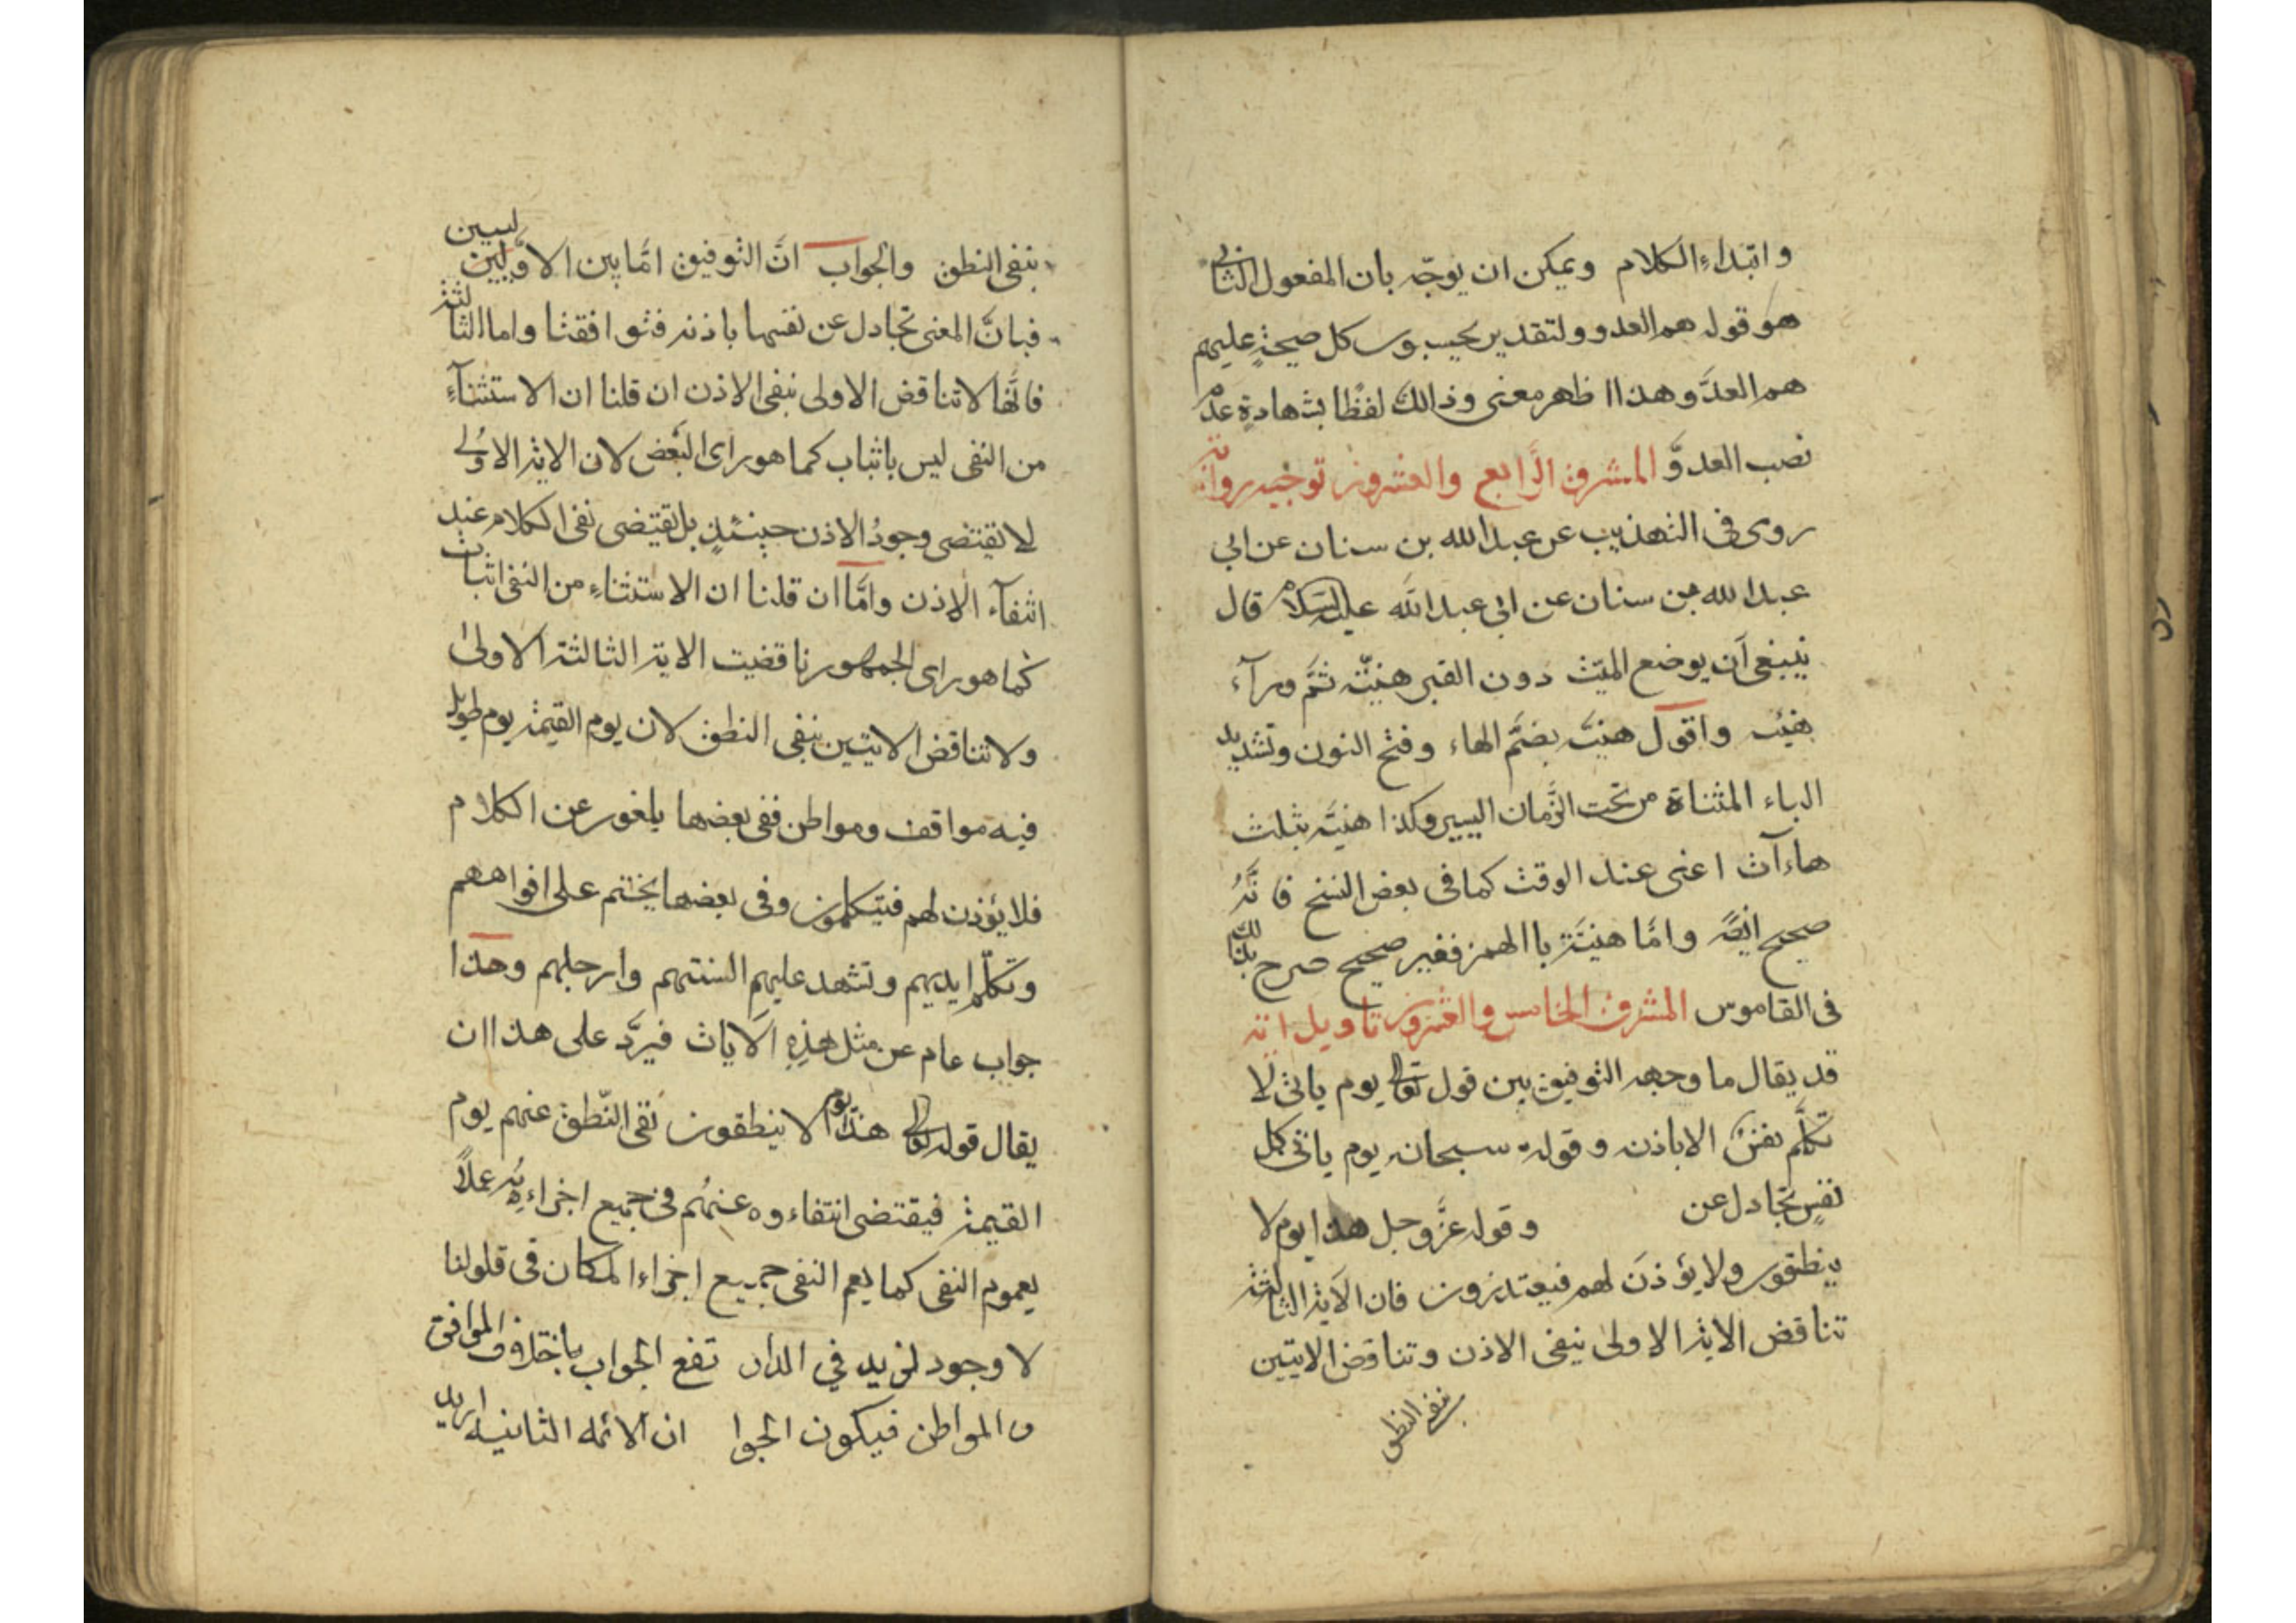 وابتداء الكلام ويمكن ان يوجّه بان المفعول الثانى
هو قوله هم العدو ولتقدير يحسبون كل صيحةٍ عليهم
هم العدوَّ وهذا اظهر معنى وذالك لفظًا بشهادةٍ عدم
نصب العدوَّ المشرق الرَّابع والعشرون توجيه رواية
روى فى التهذيب عن عبد الله بن سنان عن ابى
عبد الله بن سنان عن ابى عبد الله عليه السلام قال
ينبغى اَن يوضع الميّت دون القبر هنيّة ثمَّ ورآء
هنيّه واقول هنيّة بضمّ الهاء وفتح النون وتشديد
الياء المثناة من تحت الزَّمان اليسير وكذا هنيّة بثلث
هاءآت اعنى عند الوقت كما فى بعض النسخ فانَّهُ
صحيح ايضًا وامَّا هنيئة باالهمز فغير صحيح صرح بذلك
فى القاموس المشرق الخامس والعشرون تاويل اية
قد يقال ما وجهه التوفيق بين قول تعالى يوم ياتى لا
تكلَّم نفسٌ الا باذنه وقوله سبحانه يوم ياتى كل
نفسٍ تجادل عن وقوله عزَّ وجل هذا يوم لا
ينطقون ولا يؤذن لهم فيعتذرون فان الآية الثالثة
تناقض الاية الاولى بنفى الاذن وتناقض الايتين
بنفى النطق
بنفى النطق والجواب انَّ التوفيق امَّا بين الاوَّليين
فبانَّ المعنى تجادل عن نفسها باذنه فتوافقتا واما الثالثة
فانَّها لا تناقض الاولى بنفى الاذن ان قلنا ان الاستثنآءِ
من النفى ليس باثبات كما هو راى البَعض لان الاية الاولى
لا تقتضى وجودُ الاذن حينئذٍ بل تقتضى نفى الكلام عند
انتفآء الاذن وامَّا ان قلنا ان الاستثناءِ من النفى اثبات
كما هو راى الجمهور ناقضيت الاية الثالثة الاولى
ولا تناقض الايتين بنفى النطق لان يوم القيمة يوم طويل
فيه مواقف ومواطن ففى بعضها يلغور عن الكلام
فلا يؤذن لهم فيتكلمون وفى بعضها يختم على افواههم
وتكلّم ايديهم وتشهد عليهم السنتهم وارجلهم وهذا
جواب عام عن مثل هذِهِ الآيات فيرَّد على هذا ان
يقال قوله تعالى هذا يوم لا ينطقون نفى النّطق عنهم يوم
القيمة فيقتضى انتفاءوه عنهُم فى جميع اجزاءهِ عملاً
بعموم النفى كما يعم النفى جميع اجزاء المكان فى قلولنا
لا وجود لزيد في الدار تفع الجواب باختلاف المواقف
والمواطن فيكون الجوا ان الائه الثانيه اريد